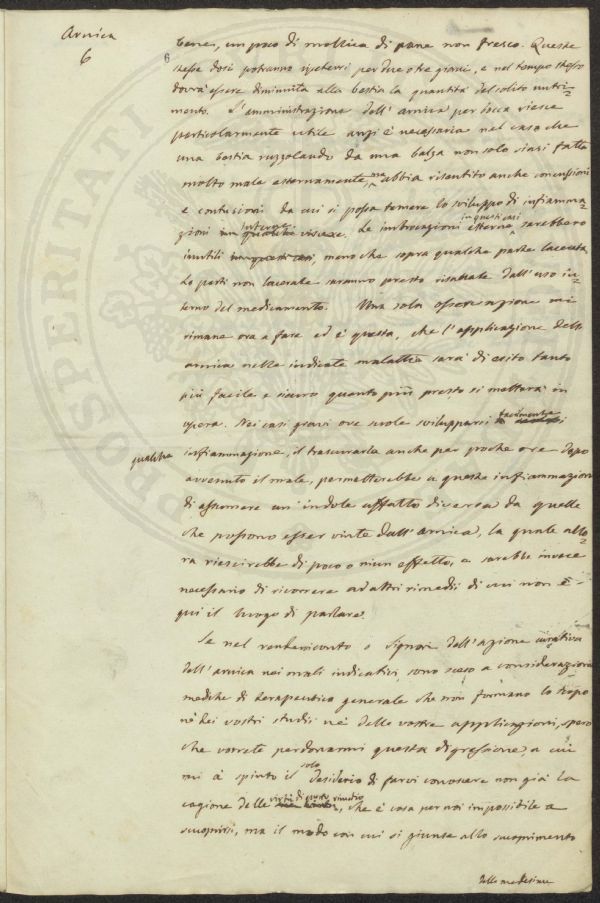 Arnica
6
6
bene, un poco di mollica di pane non fresco. Queste
stesse dosi potranno ripetersi per due o tre giorni, e nel tempo stesso
dovrà essere diminuita alla bestia la quantità del solito nutri-
mento. L'amministrazione dell'arnica per bocca riesce
particolarmente utile anzi è necessaria nel caso che
una bestia ruzzolando da una balza non solo siasi fatta
molto male esternamente, ma abbia risentito anche concussioni
e contusioni da cui si possa temere lo sviluppo di infiamma-
zioni interne. Le imbrocazioni esterne in questi casi sarebbero
inutili in questi casi, meno che sopra qualche parte lacerata.
Le parti non lacerate saranno presto risanate dall'uso in-
terno del medicamento. Una sola osservazione mi
rimane ora a fare ed è questa, che l'applicazione dell'
arnica nelle indicate malattie sarà di esito tanto
più facile e sicuro quanto più presto si metterà in
opera. Nei casi gravi ove suole svilupparsi facilmente
qualche infiammagione, il trascurarla anche per poche ore dopo
avvenuto il male, permetterebbe a queste infiammazioni
di assumere un'indole affatto diversa da quelle
che possono esser vinte dall'arnica, la quale allo-
ra riescirebbe di poco o niun effetto, e sarebbe invece
necessario di ricorrere ad altri rimedii di cui non è
qui il luogo di parlare.
Se nel rendervi conto o Signori dell'azione curativa
dell'arnica nei mali indicativi, sono sceso a considerazioni
mediche di terapeutica generale che non formano lo scopo
nè dei vostri studii nè delle vostre applicazioni, spero
che vorrete perdonarmi questa digressione, a cui
mi à spinto il solo desiderio di farvi conoscere non già la
cagione delle virtù di questo rimedio, che è cosa per noi impossibile a
scuoprirsi, ma il modo con cui si giunse allo scuoprimento
delle medesime
PROSPERITATI